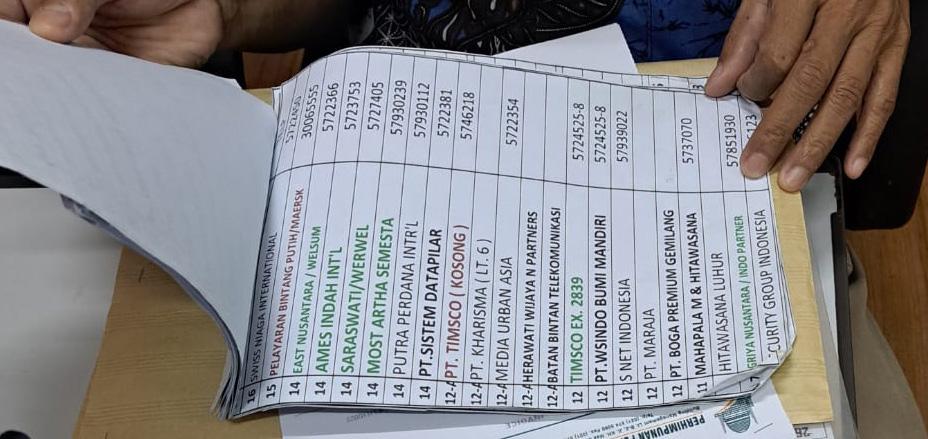 16 SWISS NIAGA INTERNATIONAL
15 PELAYARAN BINTANG PUTIH/MAERSK 5722450
14 EAST NUSANTARA / WELSUM 30065555
14 AMES INDAH INT'L 5722366
14 SARASWATI/WERWEL 5723753
14 MOST ARTHA SEMESTA 5727405
14 PUTRA PERDANA INTR'L 57930239
14 PT.SISTEM DATAPILAR 57930112
12-A PT. TIMSCO ( KOSONG ) 5722381
12-A PT. KHARISMA (LT. 6 ) 5746218
12-A MEDIA URBAN ASIA 5722354
12-A HERAWATI WIJAYA N PARTNERS
12-A BATAN BINTAN TELEKOMUNIKASI
12 TIMSCO EX. 2839 5724525-8
12 PT.WSINDO BUMI MANDIRI 5724525-8
12 S NET INDONESIA 57939022
12 PT. MARAJA
12 PT. BOGA PREMIUM GEMILANG
11 MAHAPALA M & HITAWASANA 5737070
HITAWASANA LUHUR
GRIYA NUSANTARA / INDO PARTNER 57851930
CURITY GROUP INDONESIA 123
PERHIMPUNAN